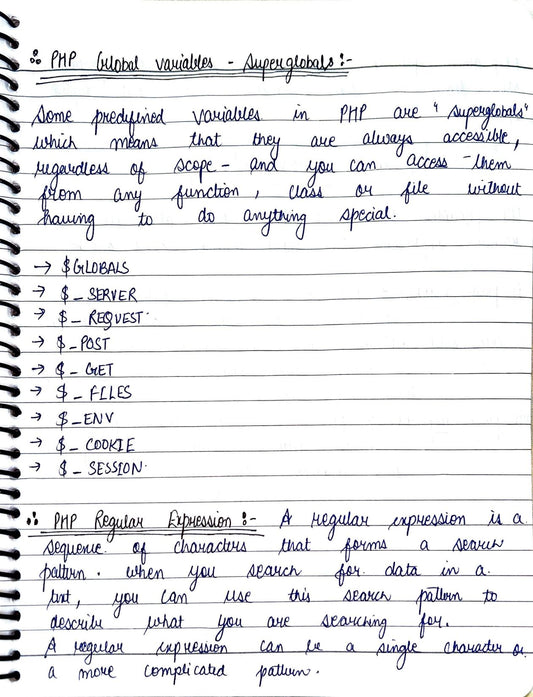 ∴ PHP Global variables - Superglobals :-
Some predefined variables in PHP are "superglobals"
which means that they are always accessible,
regardless of scope - and you can access them
from any function, class or file without
having to do anything special.
→ $GLOBALS
→ $_SERVER
→ $_REQUEST
→ $_POST
→ $_GET
→ $_FILES
→ $_ENV
→ $_COOKIE
→ $_SESSION
∴ PHP Regular Expression :- A regular expression is a
sequence of characters that forms a search
pattern. when you search for data in a
text, you can use this search pattern to
describe what you are searching for.
A regular expression can be a single character or
a more complicated pattern.